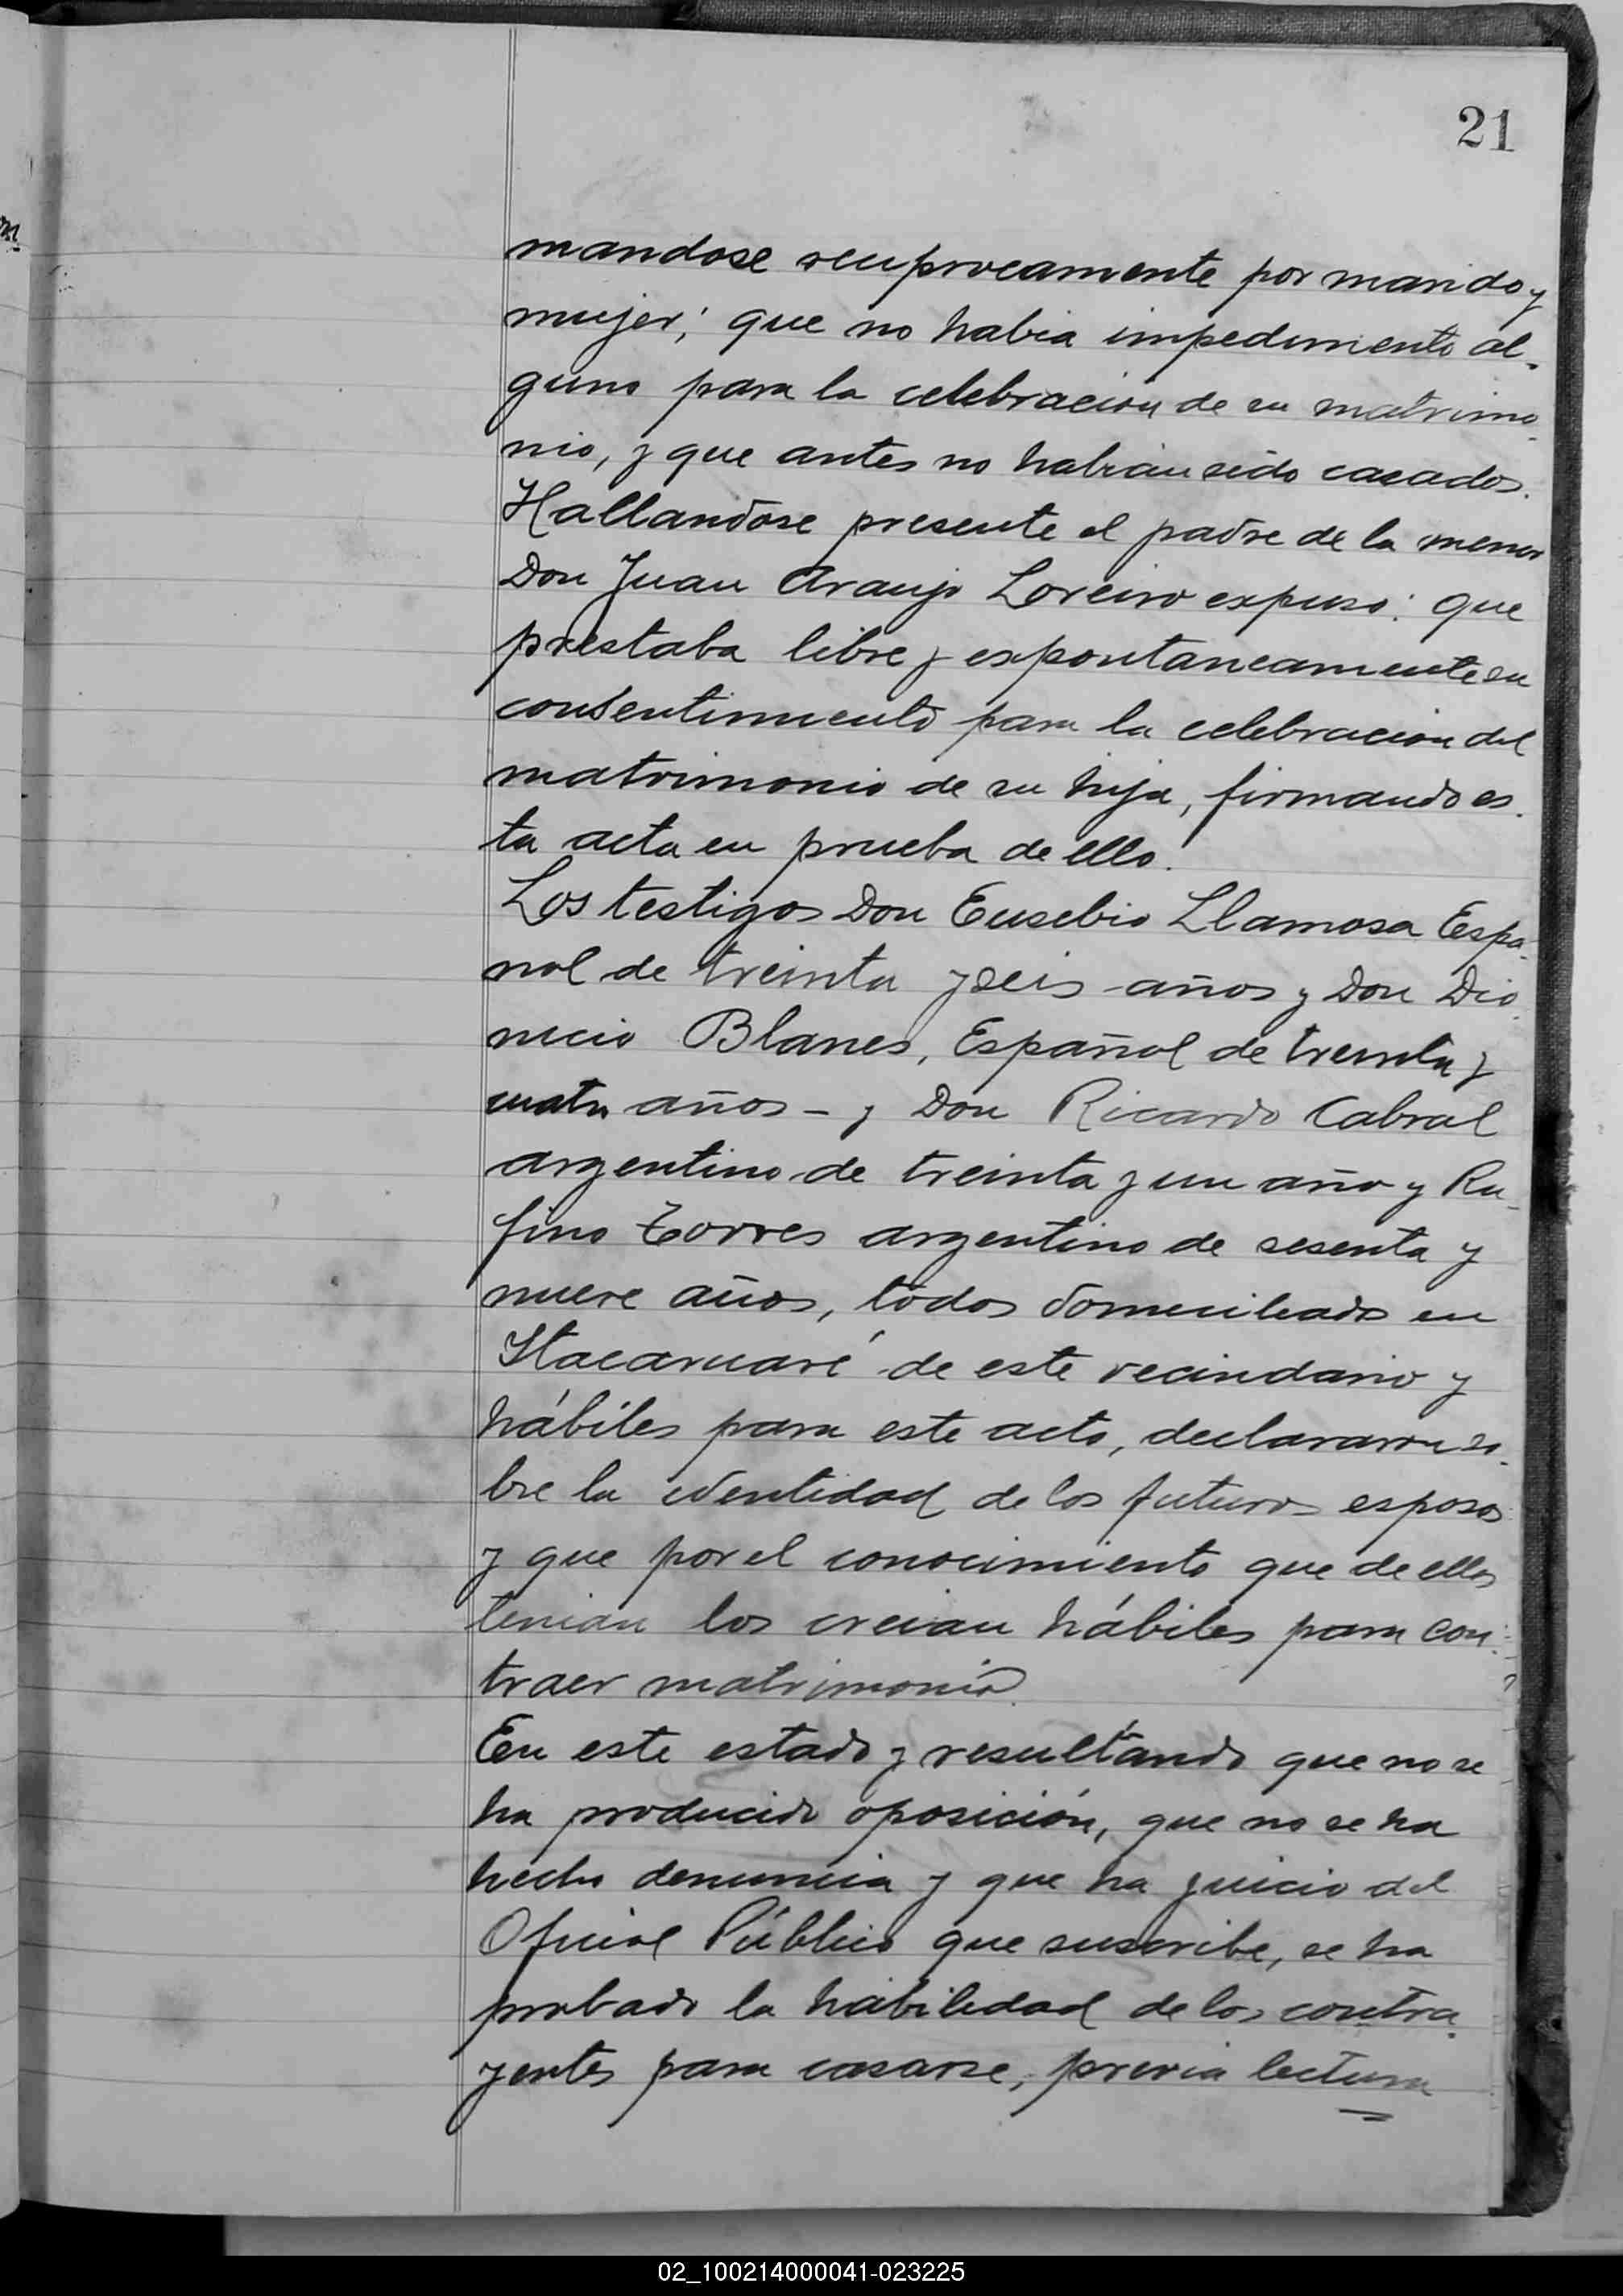 21
mandose reciprocamente por marido y
mujer; que no habia impedimento al-
guno para la celebracion de su matrimo-
nio, y que antes no habian sido casados.
Hallandose presente el padre de la menor
Don Juan Araujo Loreiro expuso: que
prestaba libre y expontaneamente su
consentimiento para la celebracion del
matrimonio de su hija, firmando es-
ta acta en prueba de ello.
Los testigos Don Eusebio Llamosa Espa-
nol de treinta y seis años y Don Dio-
nicio Blanes, Español de treinta y
cuatro años - y Don Ricardo Cabral
argentino de treinta y un año y Ru-
fino Torres argentino de sesenta y
nueve años, todos domiciliados en
Itacaruaré de este vecindario y
hábiles para este acto, declararon so-
bre la identidad de los futuros esposos
y que por el conocimiento que de ellos
tenian los creian hábiles para con-
traer matrimonio.
En este estado y resultando que no se
ha producido oposición, que no se ha
hecho denuncia y que ha juicio del
Oficial Público que suscribe, se ha
probado la habilidad de los contra-
yentes para casarse, previa lectura
02_100214000041-023225